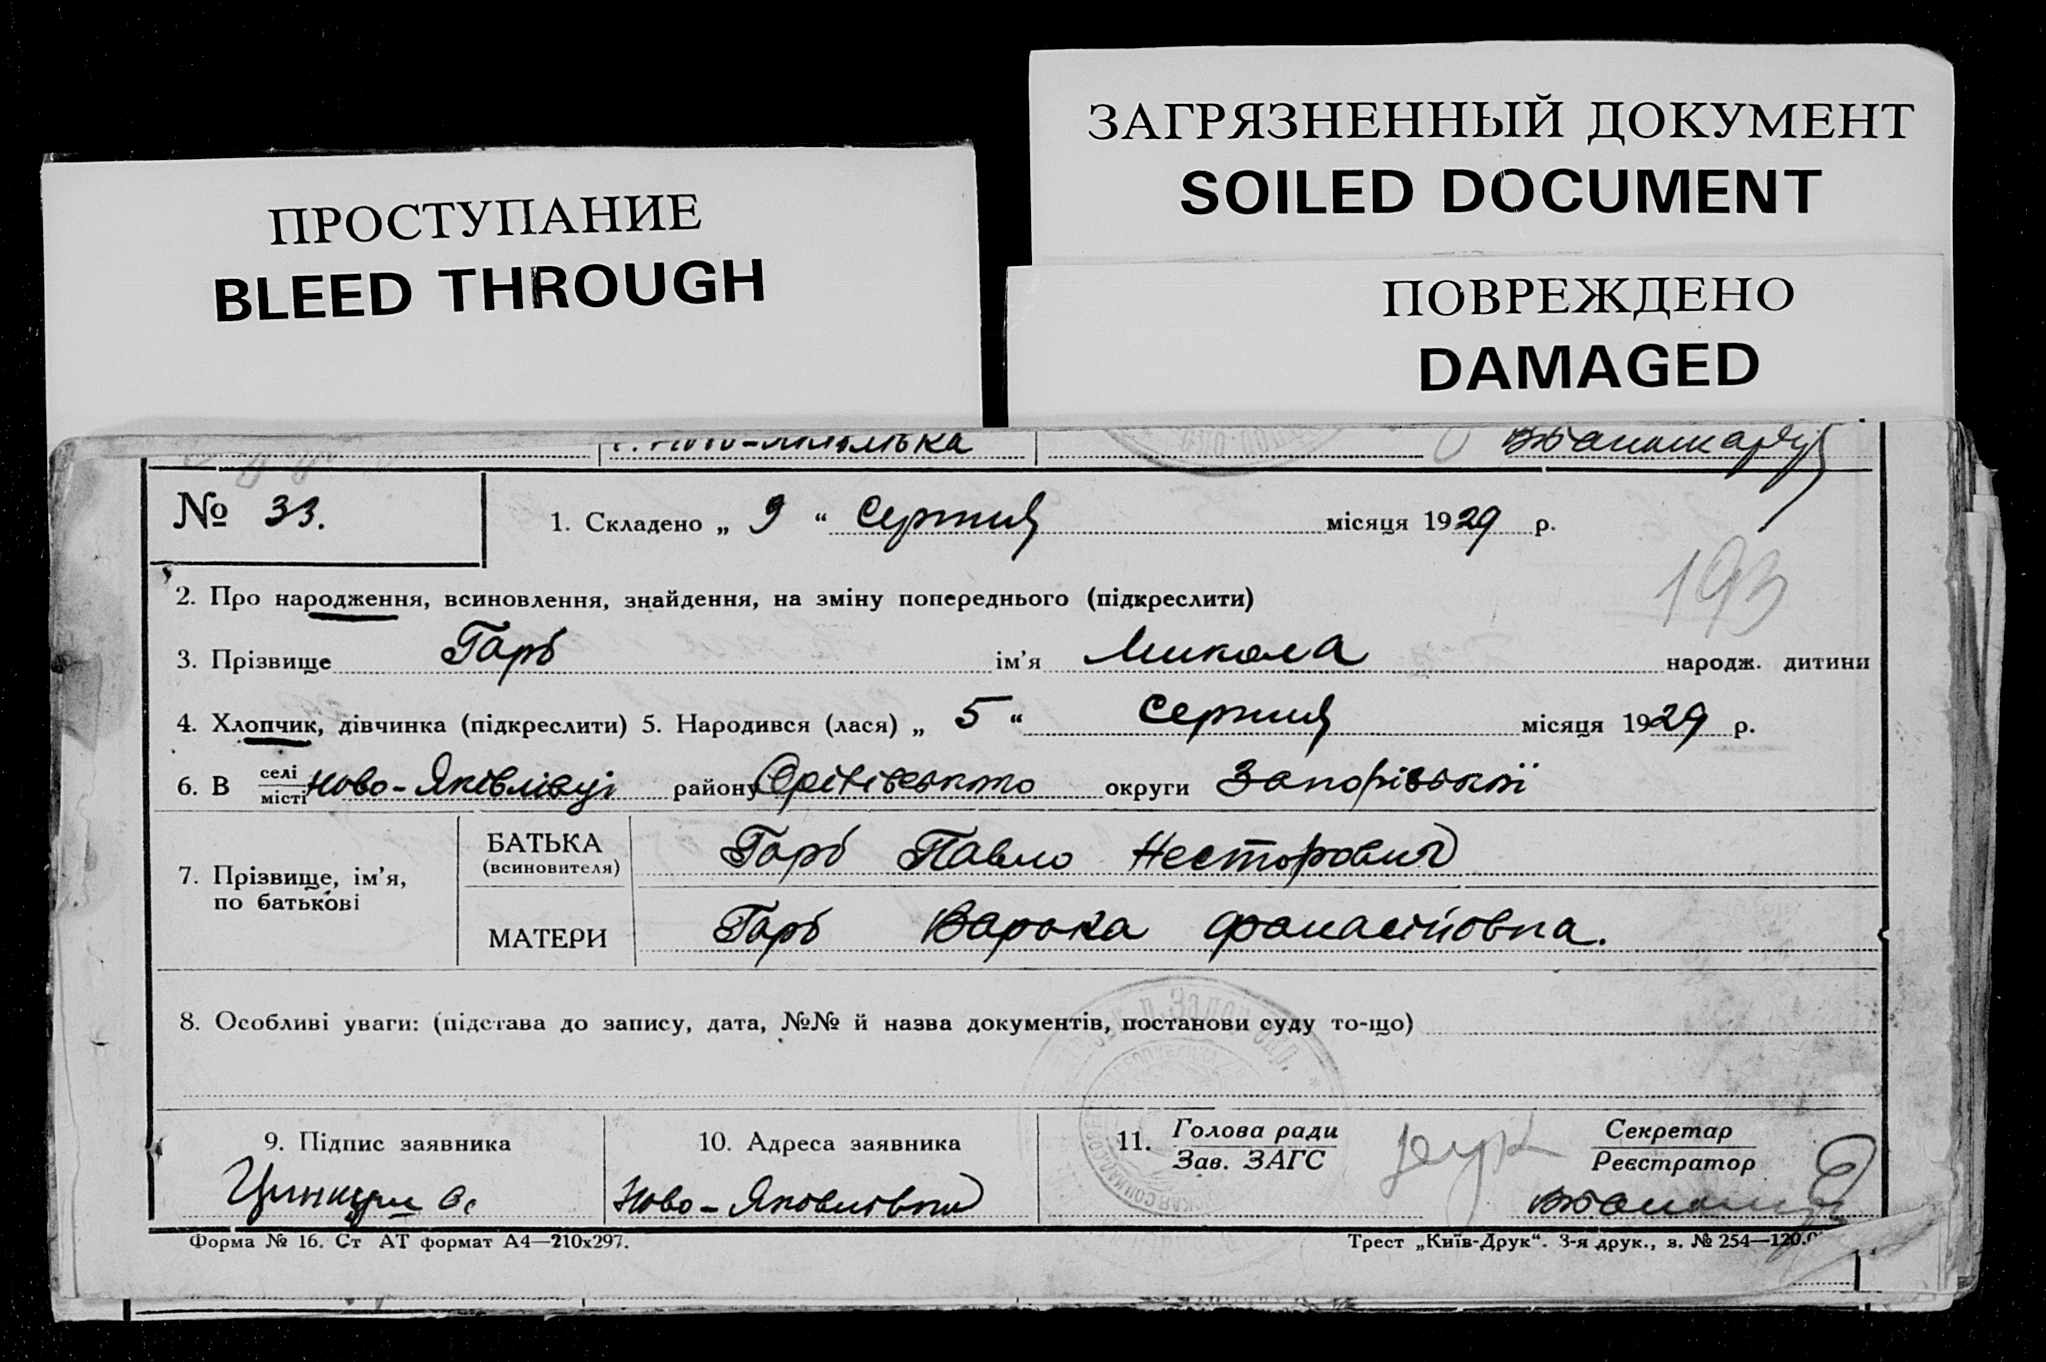 ЗАГРЯЗНЕННЫЙ ДОКУМЕНТ
SOILED DOCUMENT
ПРОСТУПАНИЕ
BLEED THROUGH
ПОВРЕЖДЕНО
DAMAGED
№ 33.
1. Складено „ 9 “ Серпня місяця 1929 р.
193
2. Про народження, всиновлення, знайдення, на зміну попереднього (підкреслити)
3. Прізвище Гарб ім'я Микола народж. дитини
4. Хлопчик, дівчинка (підкреслити) 5. Народився (лася) „ 5 “ Серпня місяця 1929 р.
6. В селі місті Ново-Яківлівці району Оріхівського округи Запорізької
7. Прізвище, ім'я, по батькові
БАТЬКА (всиновителя) Гарб Павло Несторович
МАТЕРИ Гарб Варька Фанасіївна.
8. Особливі уваги: (підстава до запису, дата, №№ й назва документів, постанови суду то-що)
9. Підпис заявника
10. Адреса заявника
Ново-Яковлівка
11. Голова ради
Зав. ЗАГС
Секретар
Реєстратор
Форма № 16. Ст АТ формат А4—210х297.
Трест „Київ-Друк“. 3-я друк., з. № 254—120.0